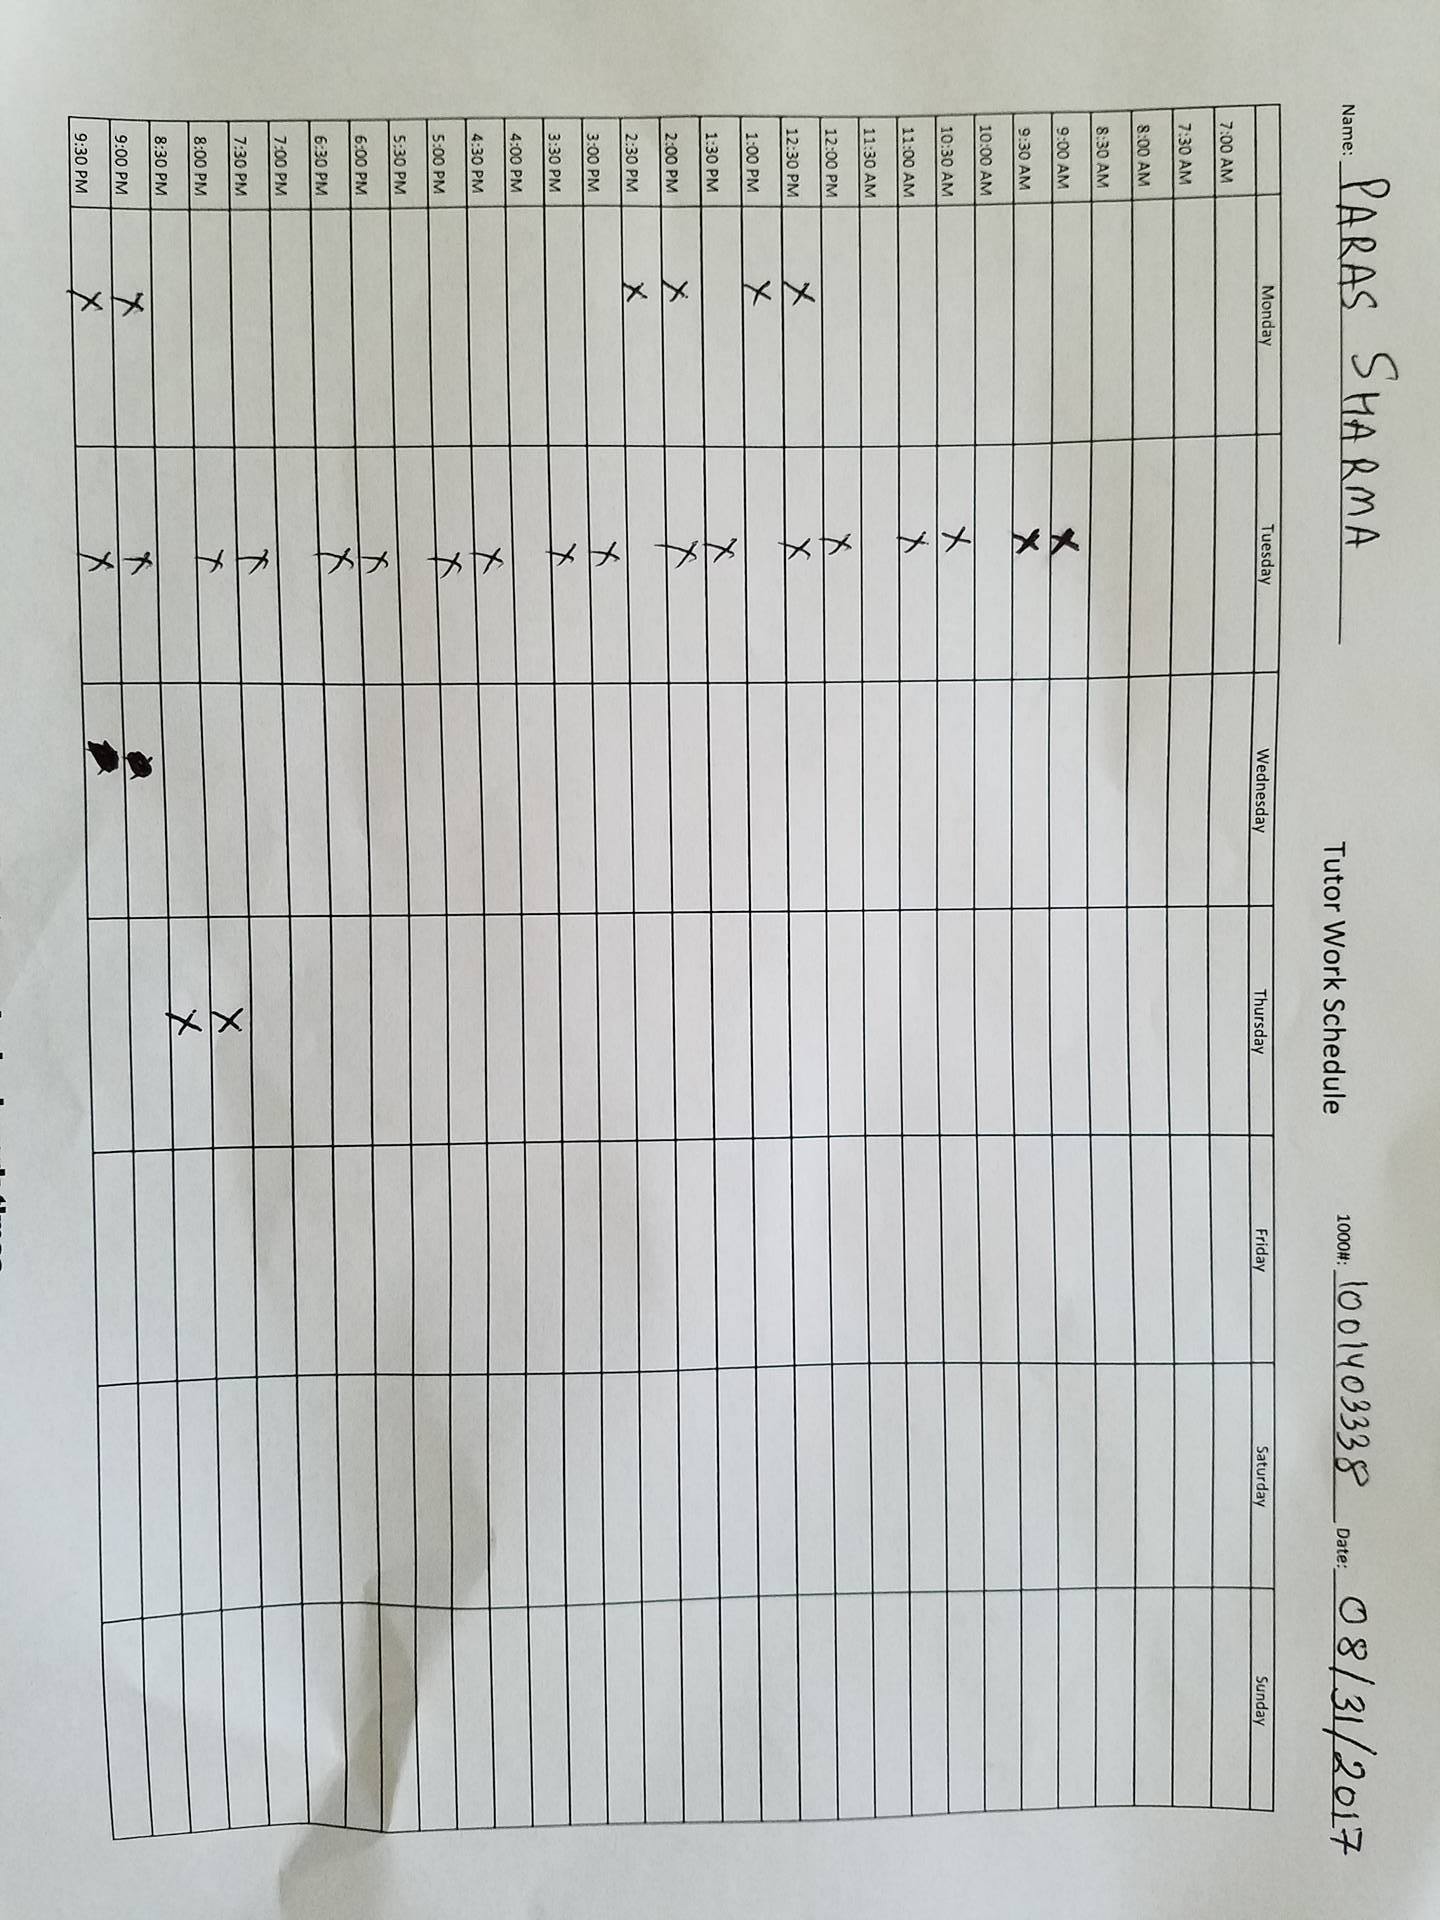 Name: PARAS SHARMA Tutor Work Schedule 1000#: 1001403338 Date: 08/31/2017
Monday Tuesday Wednesday Thursday Friday Saturday Sunday
7:00 AM
7:30 AM
8:00 AM
8:30 AM
9:00 AM X
9:30 AM X
10:00 AM
10:30 AM X
11:00 AM X
11:30 AM
12:00 PM X
12:30 PM X X
1:00 PM X
1:30 PM X
2:00 PM X X
2:30 PM X
3:00 PM X
3:30 PM X
4:00 PM
4:30 PM X
5:00 PM X
5:30 PM
6:00 PM X
6:30 PM X
7:00 PM
7:30 PM X
8:00 PM X X
8:30 PM X
9:00 PM X X
9:30 PM X X